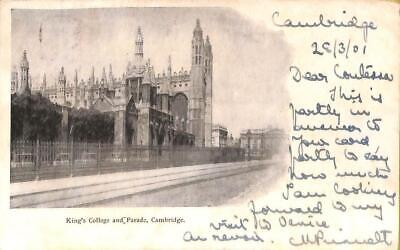 King's College and Parade, Cambridge.
Cambridge
28/3/01
Dear Contessa
This is
partly in
answer to
your card
partly to say
how much
I am looking
forward to my
visit to Venice
Au revoir.